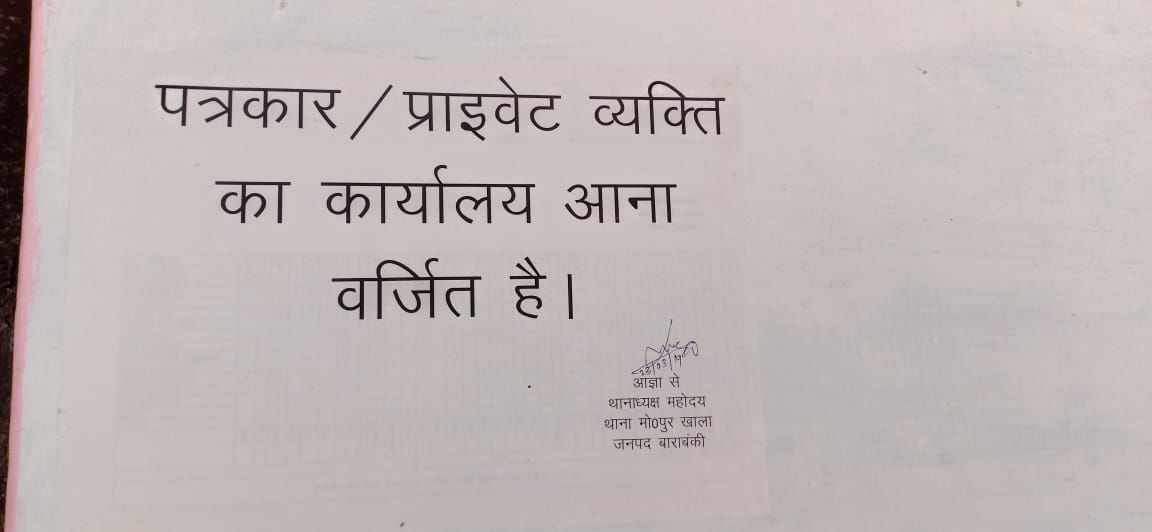 पत्रकार / प्राइवेट व्यक्ति
का कार्यालय आना
वर्जित है।
आज्ञा से
थानाध्यक्ष महोदय
थाना मो0पुर खाला
जनपद बाराबंकी